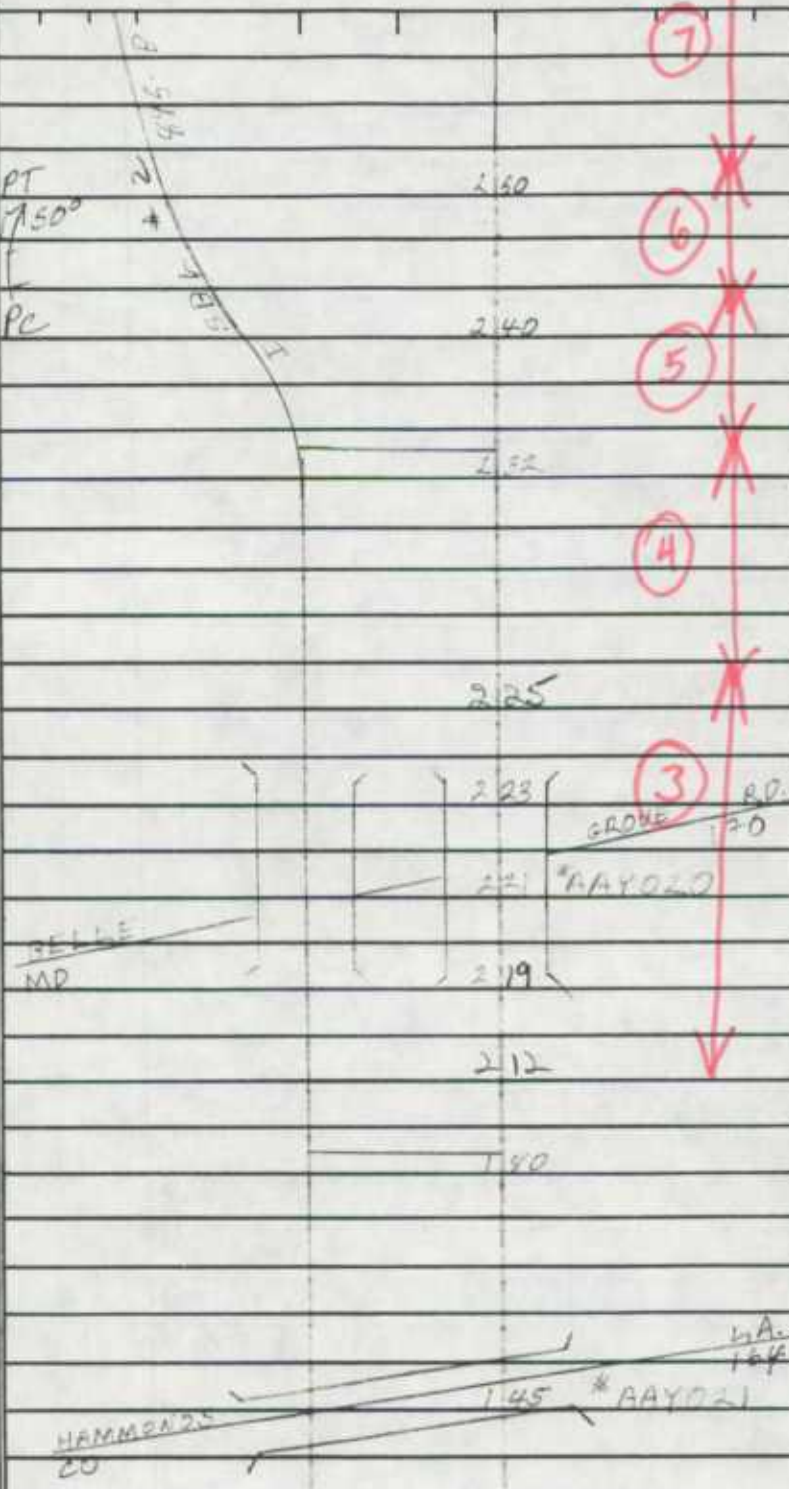 7
PT
150°
2 50
6
PC
2 40
5
2 32
4
2 25
3
2 23
GROVE RD.
20
2 21 *AAY020
BELLE
MD
2 19
2 12
1 80
LA.
164
1 45 *AAY021
HAMMONDS
CO